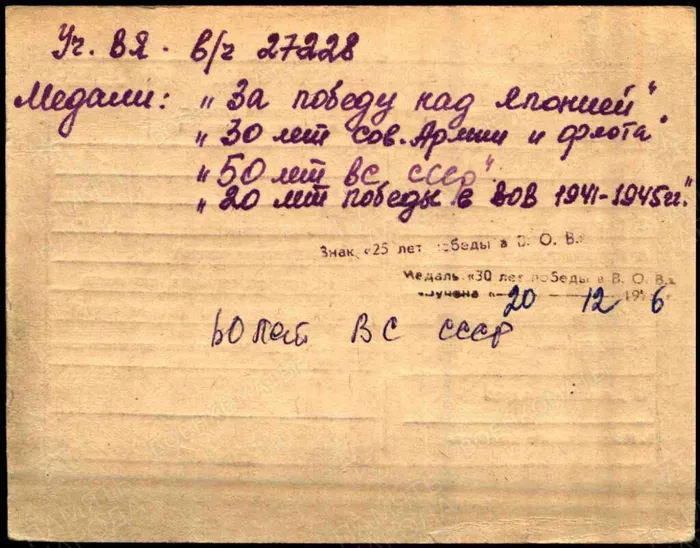 Уч. ВЯ. в/ч 27228
Медали: „За победу над Японией"
„30 лет сов. Армии и флота"
„50 лет ВС СССР".
„20 лет победы в ВОВ 1941-1945гг."
Знак «25 лет победы в В. О. В.»
Медаль «30 лет победы в В. О. В.»
вручена « 20 12 1976
60 лет ВС СССР